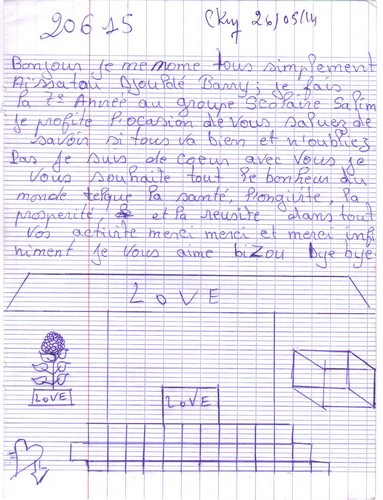 20615
Cky 26/05/14
Bonjour je me nome tous simplement
Aïssatou Djouldé Barry; je fais
la 7e Année au groupe Scolaire Salim
je profite l'ocasion de vous saluez de
savoir si tous va bien et n'oubliez
Pas je suis de cœur avec vous je
vous souhaite tout le bonheur du
monde telque la santé, longivité, la
prosperité, et la reusite dans tout
vos activité merci merci et merci infi
niment je vous aime bizou bye bye
LOVE
LOVE
LOVE